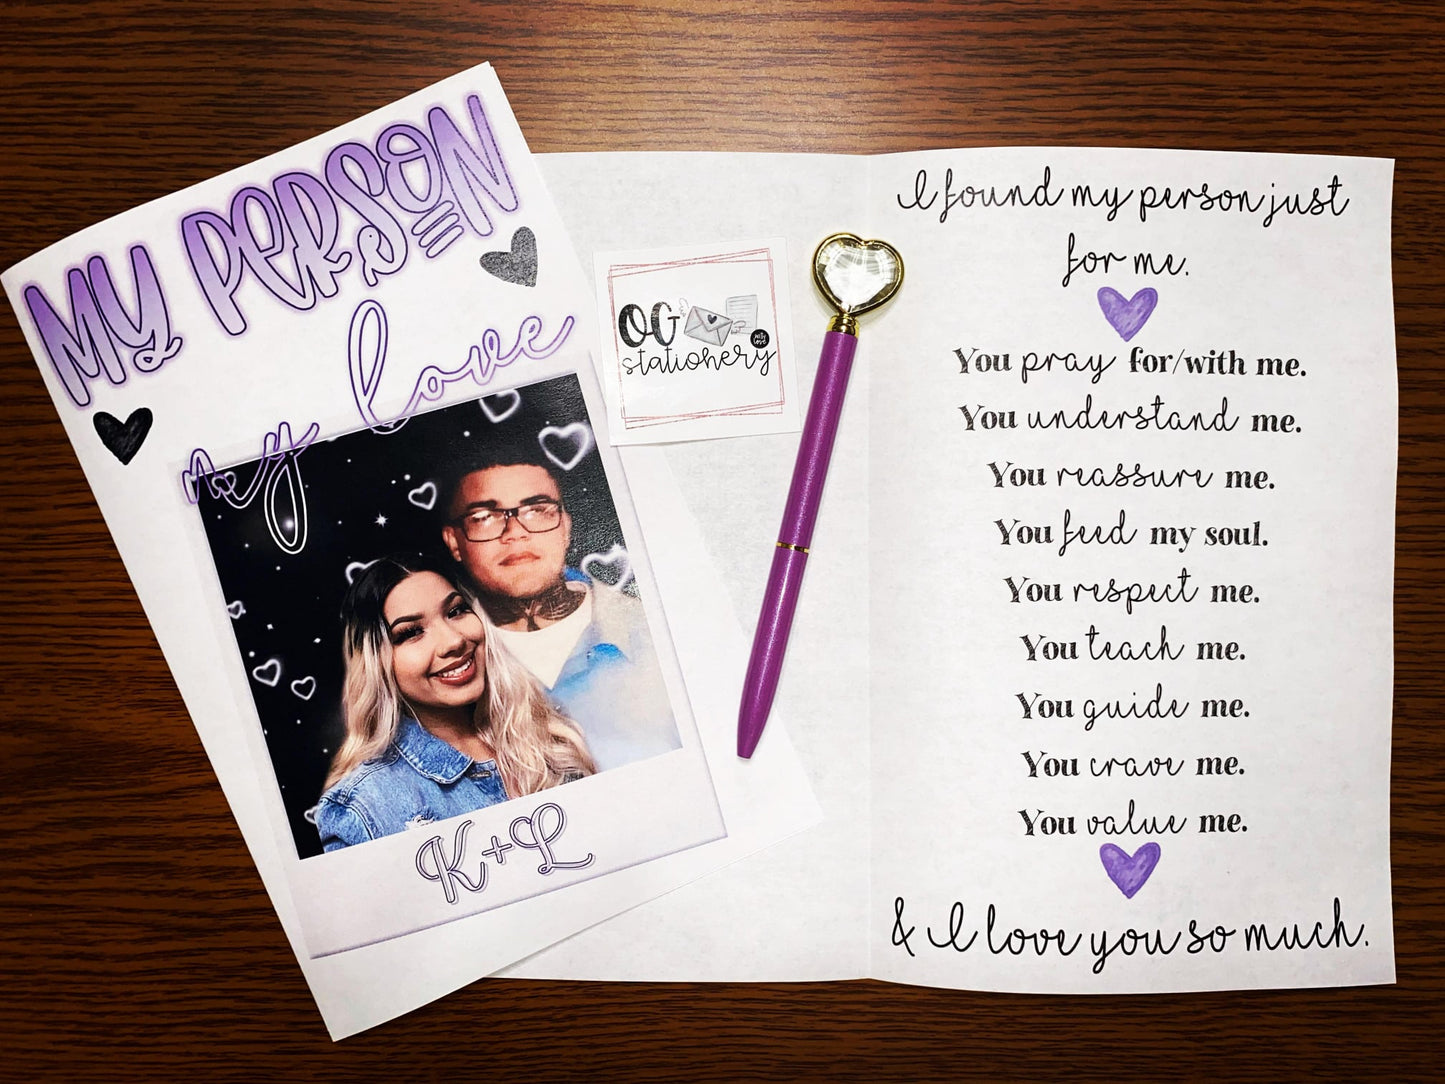 MY PERSON
my love
K+L
OG
stationery
I found my person just
for me.
You pray for/with me.
You understand me.
You reassure me.
You feed my soul.
You respect me.
You teach me.
You guide me.
You crave me.
You value me.
& I love you so much.